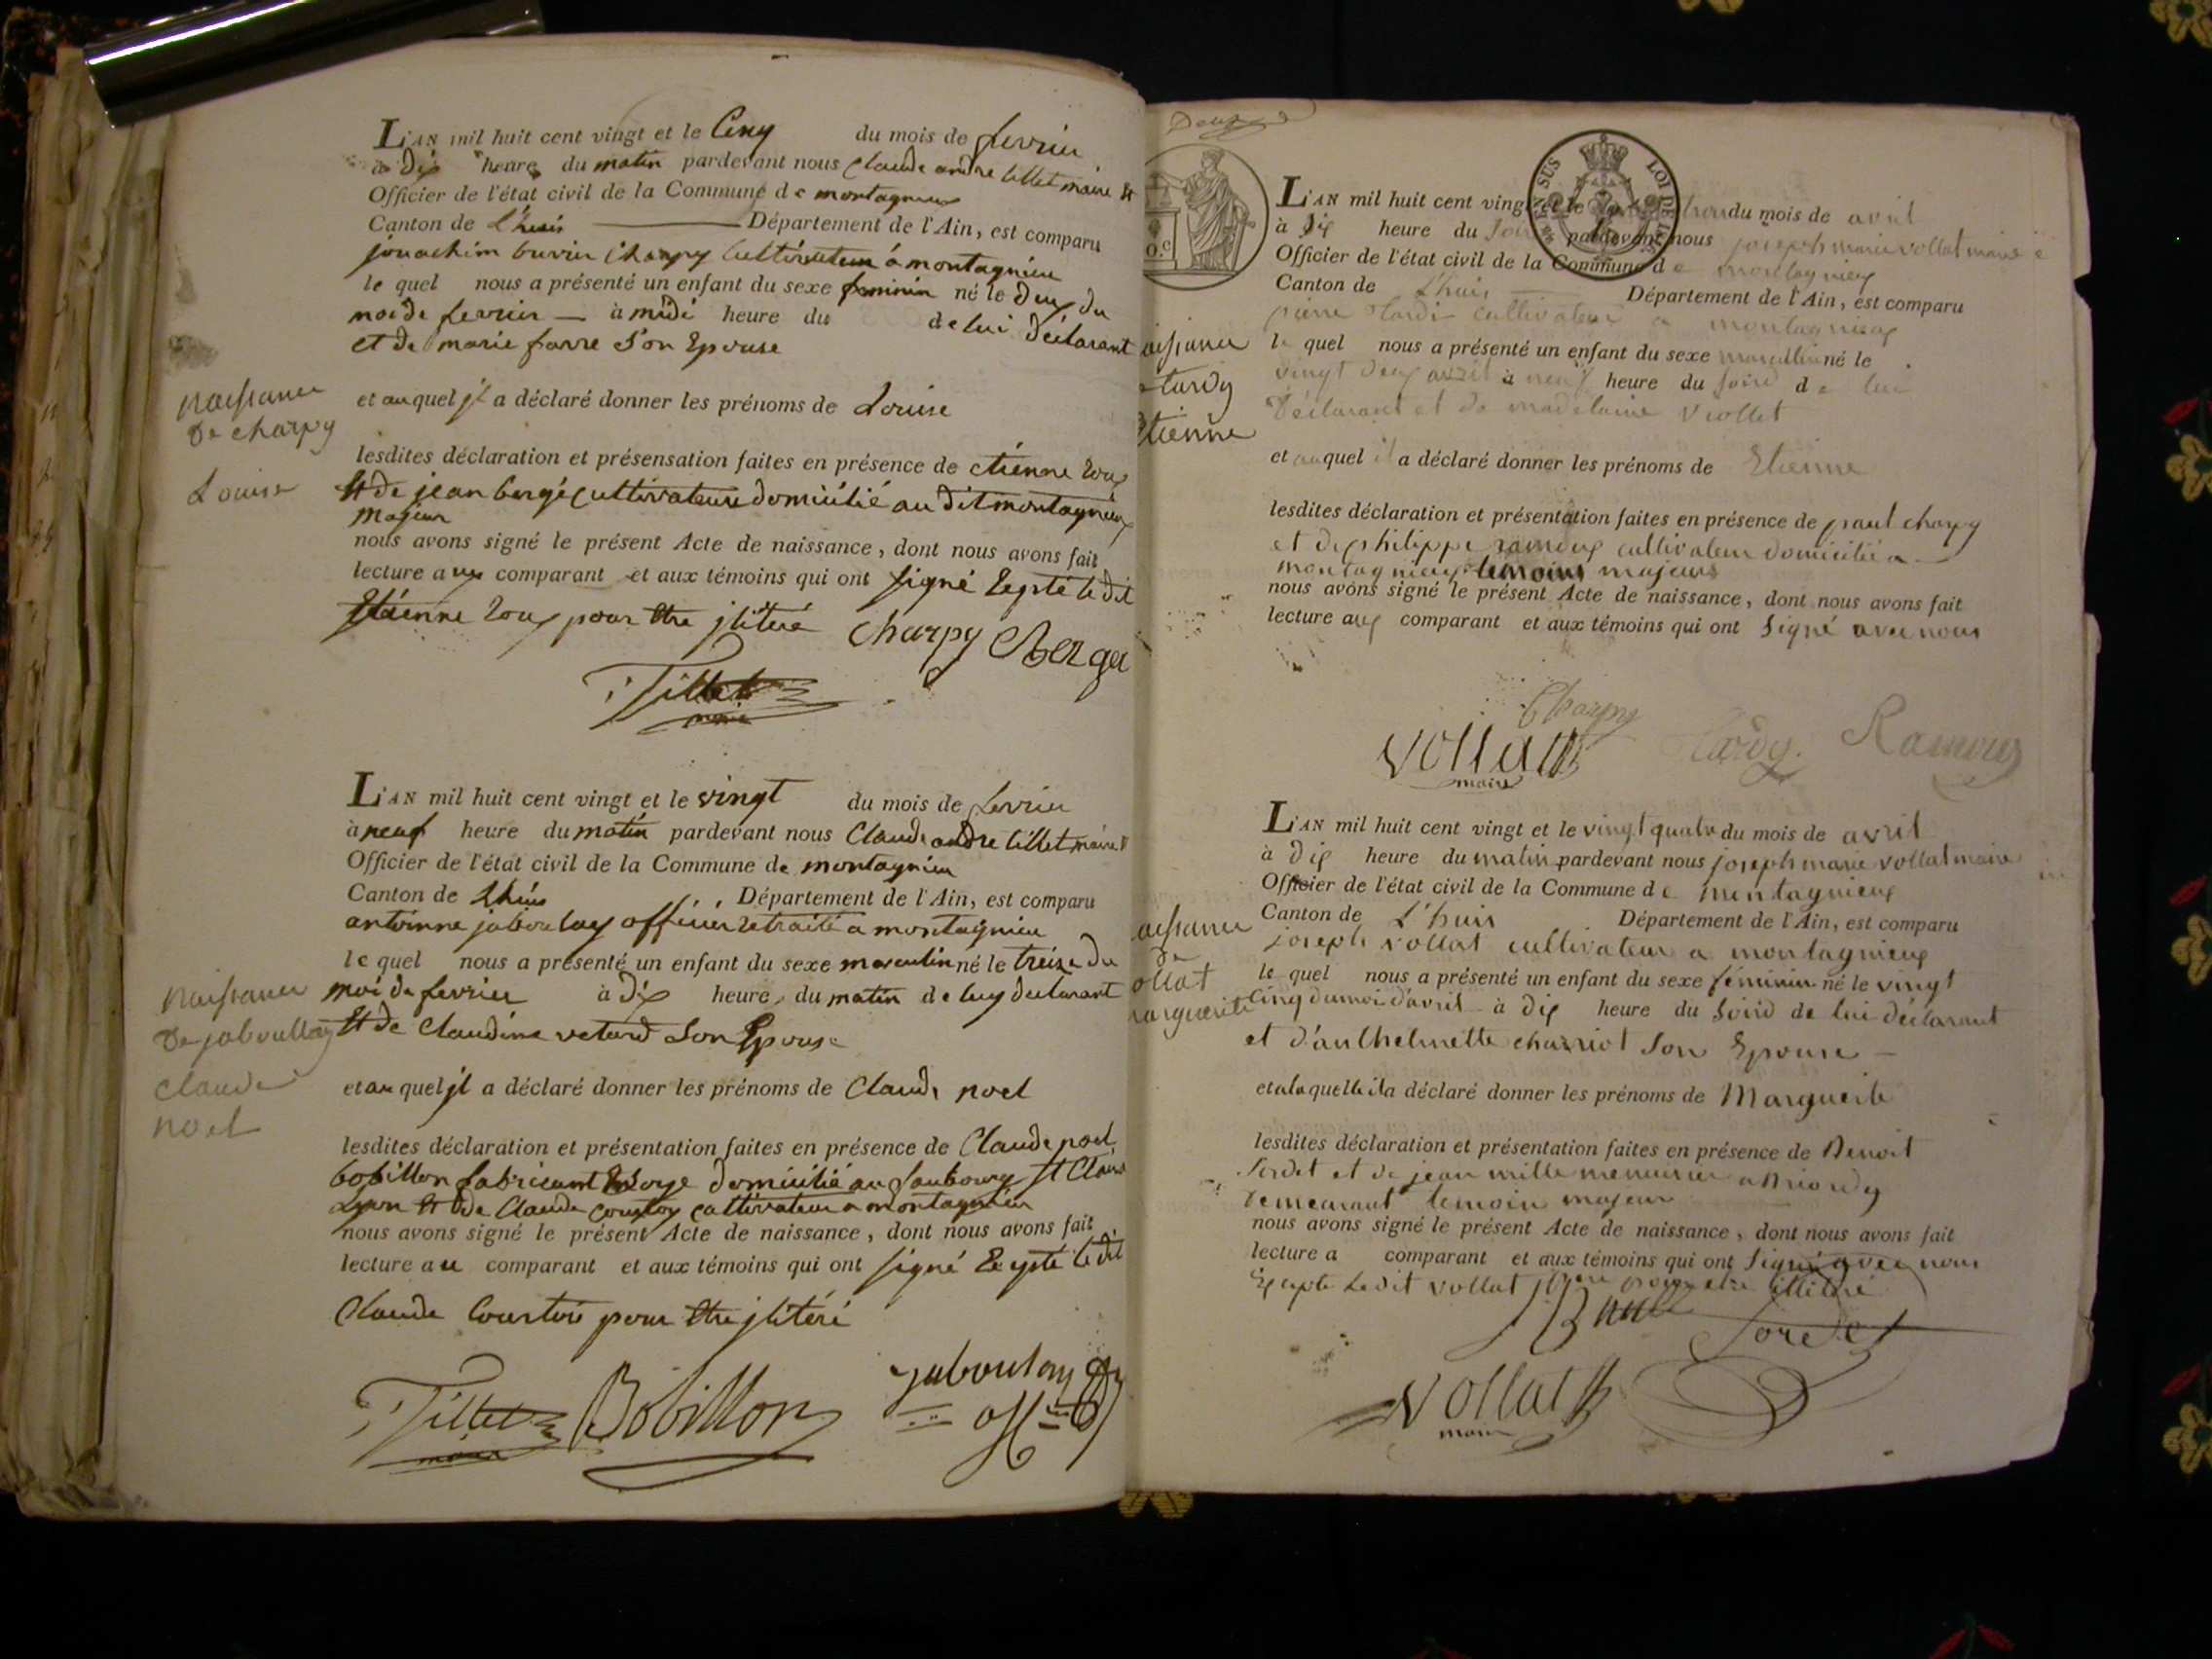 L'AN mil huit cent vingt et le Cinq du mois de fevrier
à dix heure du matin pardevant nous Claude andre tillet maire et
Officier de l'état civil de la Commune de montagnieu
Canton de L'huis Département de l'Ain, est comparu
jouachim buvier Charpy Cultivateur à montagnieu
le quel nous a présenté un enfant du sexe feminin né le deux du
moi de fevrier à midi heure du de lui déclarant
et de marie favre Son Epouse
naissance
De charpy
Louise
et au quel jl a déclaré donner les prénoms de Louise
lesdites déclaration et présensation faites en présence de etienne roux
Et de jean bergé Cultivateur domicilié au dit montagnieux
majeur
nous avons signé le présent Acte de naissance, dont nous avons fait
lecture aux comparant et aux témoins qui ont signé Eepté le dit
Etienne roux pour Etre jlitéré Charpy Berger
Tillet
maire
L'AN mil huit cent vingt et le vingt du mois de fevrier
à neuf heure du matin pardevant nous Claude andre tillet maire et
Officier de l'état civil de la Commune de montagnieu
Canton de Lhuis Département de l'Ain, est comparu
antoinne jaboulay officier retraité a montagnieu
le quel nous a présenté un enfant du sexe masculin né le treize du
moi de fevrier à dix heure du matin de luy declarant
Et de Claudine Son Epouse
naissance
De jaboullay
Claude
noel
et au quel jl a déclaré donner les prénoms de Claude noel
lesdites déclaration et présentation faites en présence de Claude noel
bobillon fabricant domicilié au faubourg St Clair
Lyon Et de Claude Cultivateur a montagnieu
nous avons signé le présent Acte de naissance, dont nous avons fait
lecture au comparant et aux témoins qui ont signé Eepté le dit
Claude Courtois pour Etre jlitéré
Tillet Bobillon jaboulay
maire
Deux
L'AN mil huit cent vingt et le du mois de avril
à dix heure du Soir pardevant nous joseph marie vollat maire
Officier de l'état civil de la Commune de montagnieux
Canton de L'huis Département de l'Ain, est comparu
pierre tardi cultivateur a montagnieux
le quel nous a présenté un enfant du sexe masculin né le
vingt deux avril à neuf heure du Soird de lui
Déclarant et de madelaine viollet
aissance
tardy
Etienne
et auquel il a déclaré donner les prénoms de Etienne
lesdites déclaration et présentation faites en présence de paul charpy
et de philippe ramoux cultivateur domicilié a
montagnieux temoins majeurs
nous avons signé le présent Acte de naissance, dont nous avons fait
lecture aux comparant et aux témoins qui ont Signé avec nous
Charpy
Vollat tardy. Ramoux
maire
L'AN mil huit cent vingt et le vingt quatre du mois de avril
à dix heure du matin pardevant nous joseph marie vollat maire
Officier de l'état civil de la Commune de montagnieux
Canton de L'huis Département de l'Ain, est comparu
joseph vollat cultivateur a montagnieux
le quel nous a présenté un enfant du sexe féminin né le vingt
cinq du moi d'avril à dix heure du Soird de lui déclarant
et d'anthelmette charriot Son Epouse
aissance
de
ollat
arguerite
et a laquelle ila déclaré donner les prénoms de Marguerite
lesdites déclaration et présentation faites en présence de Benoit
Sordet et de jean mille menuisier a Briordy
Demeurant temoin majeur
nous avons signé le présent Acte de naissance, dont nous avons fait
lecture a comparant et aux témoins qui ont Signé avec nous
Exepté Ledit vollat pour etre illitéré
Sordet
Vollat
maire
SUS LOI DE